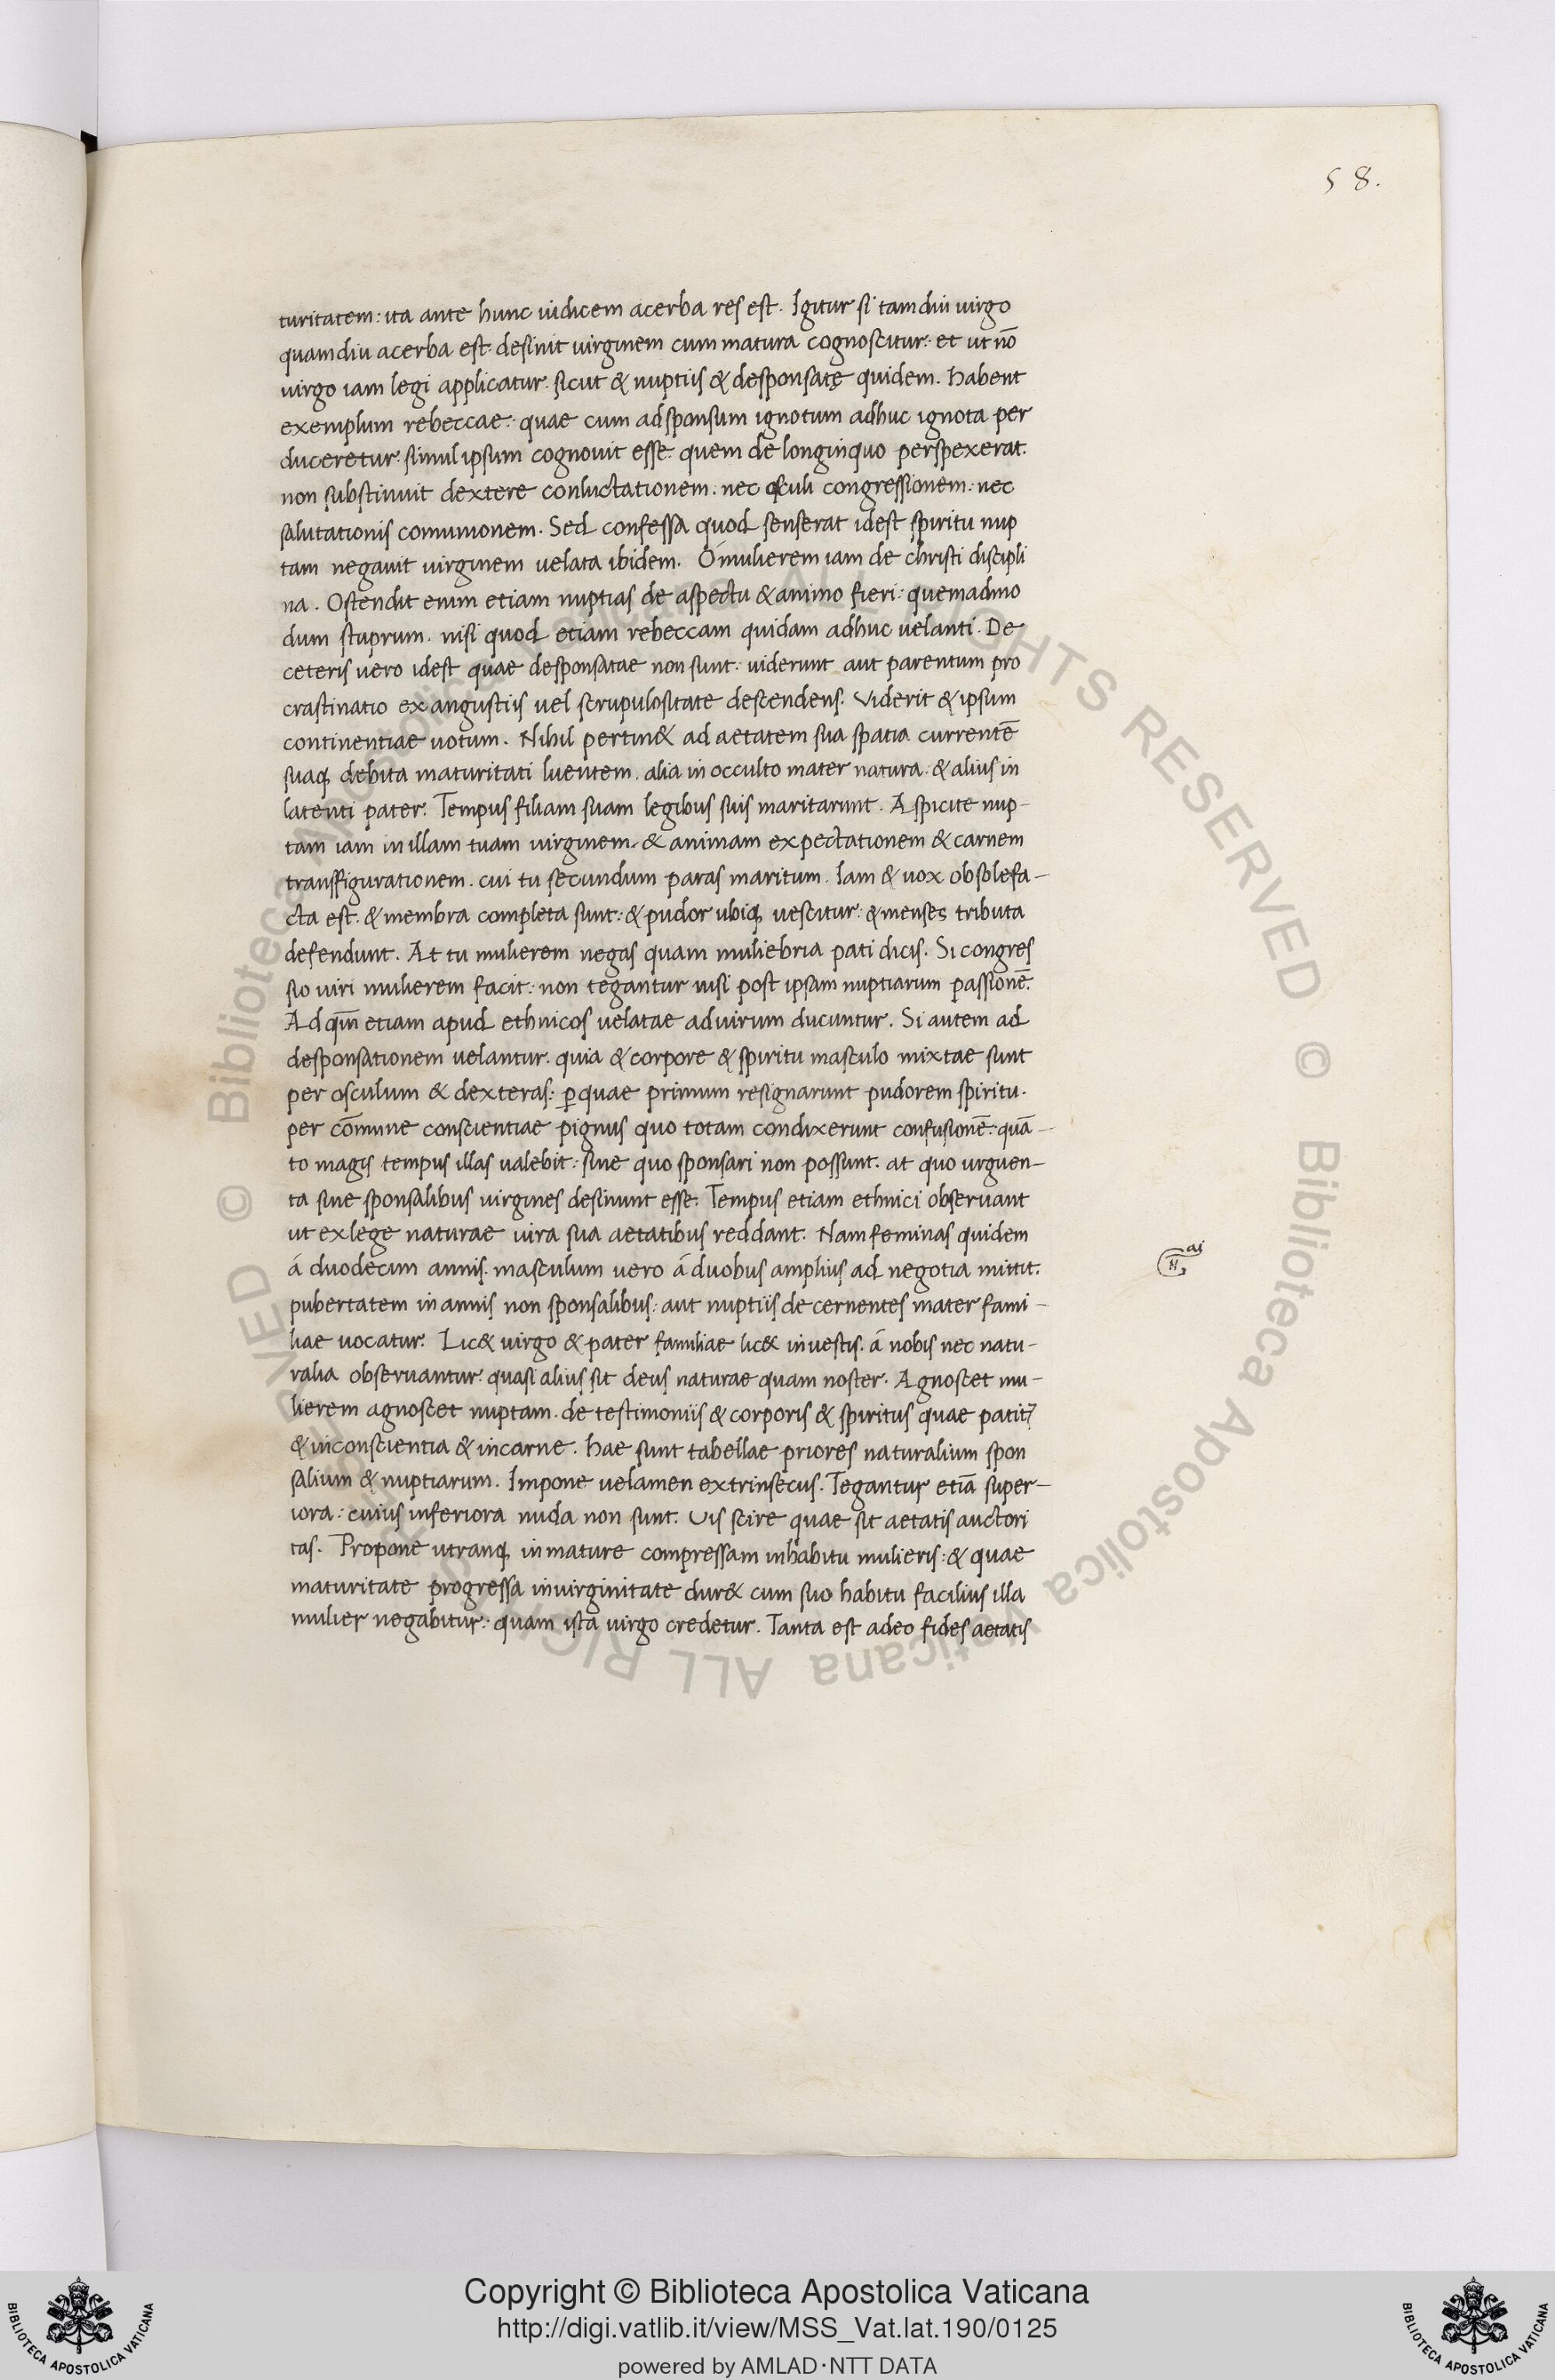 58.
turitatem: ita ante hunc iudicem acerba res est. Igitur si tamdiu virgo
quamdiu acerba est. desinit virginem cum matura cognoscitur: et ut nō
virgo iam legi applicatur. sicut & nuptiis & desponsatę quidem. habent
exemplum rebeccae: quae cum ad sponsum ignotum adhuc ignota per
duceretur. simul ipsum cognovit esse. quem de longinquo perspexerat.
non substinuit dextere conluctationem. nec osculi congressionem: nec
salutationis comunionem. Sed confessa quod senserat idest spiritu nup
tam negavit virginem velata ibidem. O mulierem iam de christi discipli
na. Ostendit enim etiam nuptias de aspectu & animo fieri: quemadmo
dum stuprum. nisi quod etiam rebeccam quidam adhuc velanti. De
ceteris vero idest quae desponsatae non sunt: viderunt aut parentum pro
crastinatio ex angustiis vel scrupulositate descendens. Viderit & ipsum
continentiae votum. Nihil pertin& ad aetatem sua spatia currentē
suaq; debita maturitati luentem. alia in occulto mater natura: & alius in
latenti pater. Tempus filiam suam legibus suis maritarunt. Aspicite nup-
tam iam in illam tuam virginem. & animam expectationem & carnem
transfigurationem. cui tu secundum paras maritum. Iam & vox obsolefa-
cta est. & membra completa sunt: & pudor ubiq; vescitur: & menses tributa
defendunt. At tu mulierem negas quam muliebria pati dicis. Si congres
sio viri mulierem facit: non tegantur nisi post ipsam nuptiarum passionē.
Ad qīn etiam apud ethnicos velatae ad virum ducuntur. Si autem ad
desponsationem velantur. quia & corpore & spiritu masculo mixtae sunt
per osculum & dexteras: ꝑ quae primum resignarunt pudorem spiritu.
per cōmune conscientiae pignus quo totam condixerunt confusionē: quā-
to magis tempus illas valebit: sine quo sponsari non possunt. at quo urguen-
ta sine sponsalibus virgines desinunt esse. Tempus etiam ethnici observant
ut ex lege naturae iura sua aetatibus reddant. Nam feminas quidem
á duodecim annis. masculum vero á duobus amplius ad negotia mittit.
pubertatem in annis non sponsalibus: aut nuptiis decernentes mater fami-
liae vocatur. Lic& virgo & pater familiae lic& investis. á nobis nec natu-
ralia observantur. quasi alius sit deus naturae quam noster. Agnoscet mu-
lierem agnoscet nuptam. de testimoniis & corporis & spiritus quae patit᷑
& in conscientia & in carne. hae sunt tabellae priores naturalium spon
salium & nuptiarum. Impone velamen extrinsecus. Tegantur etiā super-
iora: cuius inferiora nuda non sunt. Vis scire quae sit aetatis auctori
tas. Propone utranq; inmature compressam in habitu mulieris: & quae
maturitate progressa in virginitate dur& cum suo habitu facilius illa
mulier negabitur: quam ista virgo credetur. Tanta est adeo fides aetatis
Copyright © Biblioteca Apostolica Vaticana
http://digi.vatlib.it/view/MSS_Vat.lat.190/0125
powered by AMLAD·NTT DATA
BIBLIOTECA APOSTOLICA VATICANA
BIBLIOTECA APOSTOLICA VATICANA
© Biblioteca Apostolica Vaticana ALL RIGHTS RESERVED © Biblioteca Apostolica Vaticana ALL RIGHTS RESERVED